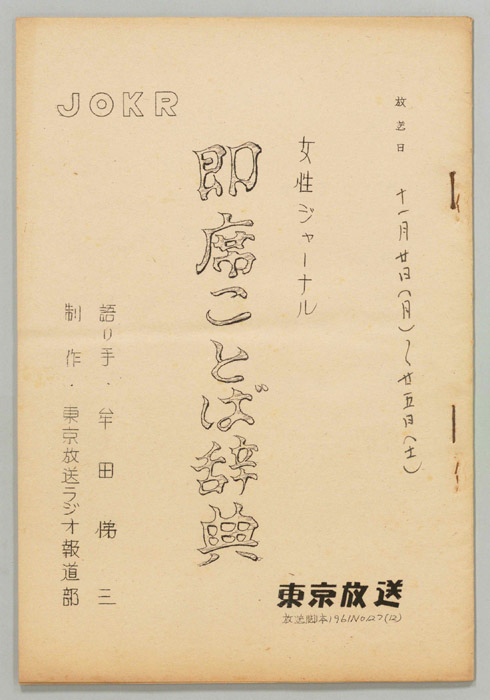 JOKR
放送日 十一月廿日(月)〜廿五日(土)
女性ジャーナル
即席ことば辞典
語り手・牟田悌三
制作・東京放送ラジオ報道部
東京放送
放送脚本1961No127(12)